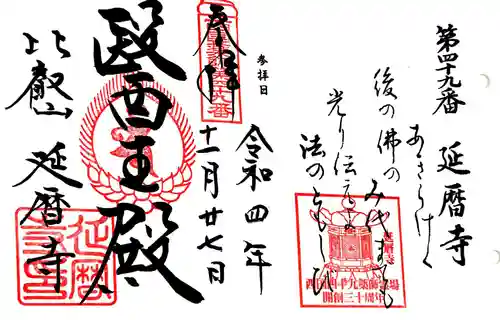 第四十九番 延暦寺
あきらけく
後の佛の
みよまでも
光り伝えよ
法のともしび
延暦寺
西国四十九薬師霊場
開創三十周年
参拝日
令和四年
十一月廿七日
奉拝
醫王殿
比叡山 延暦寺